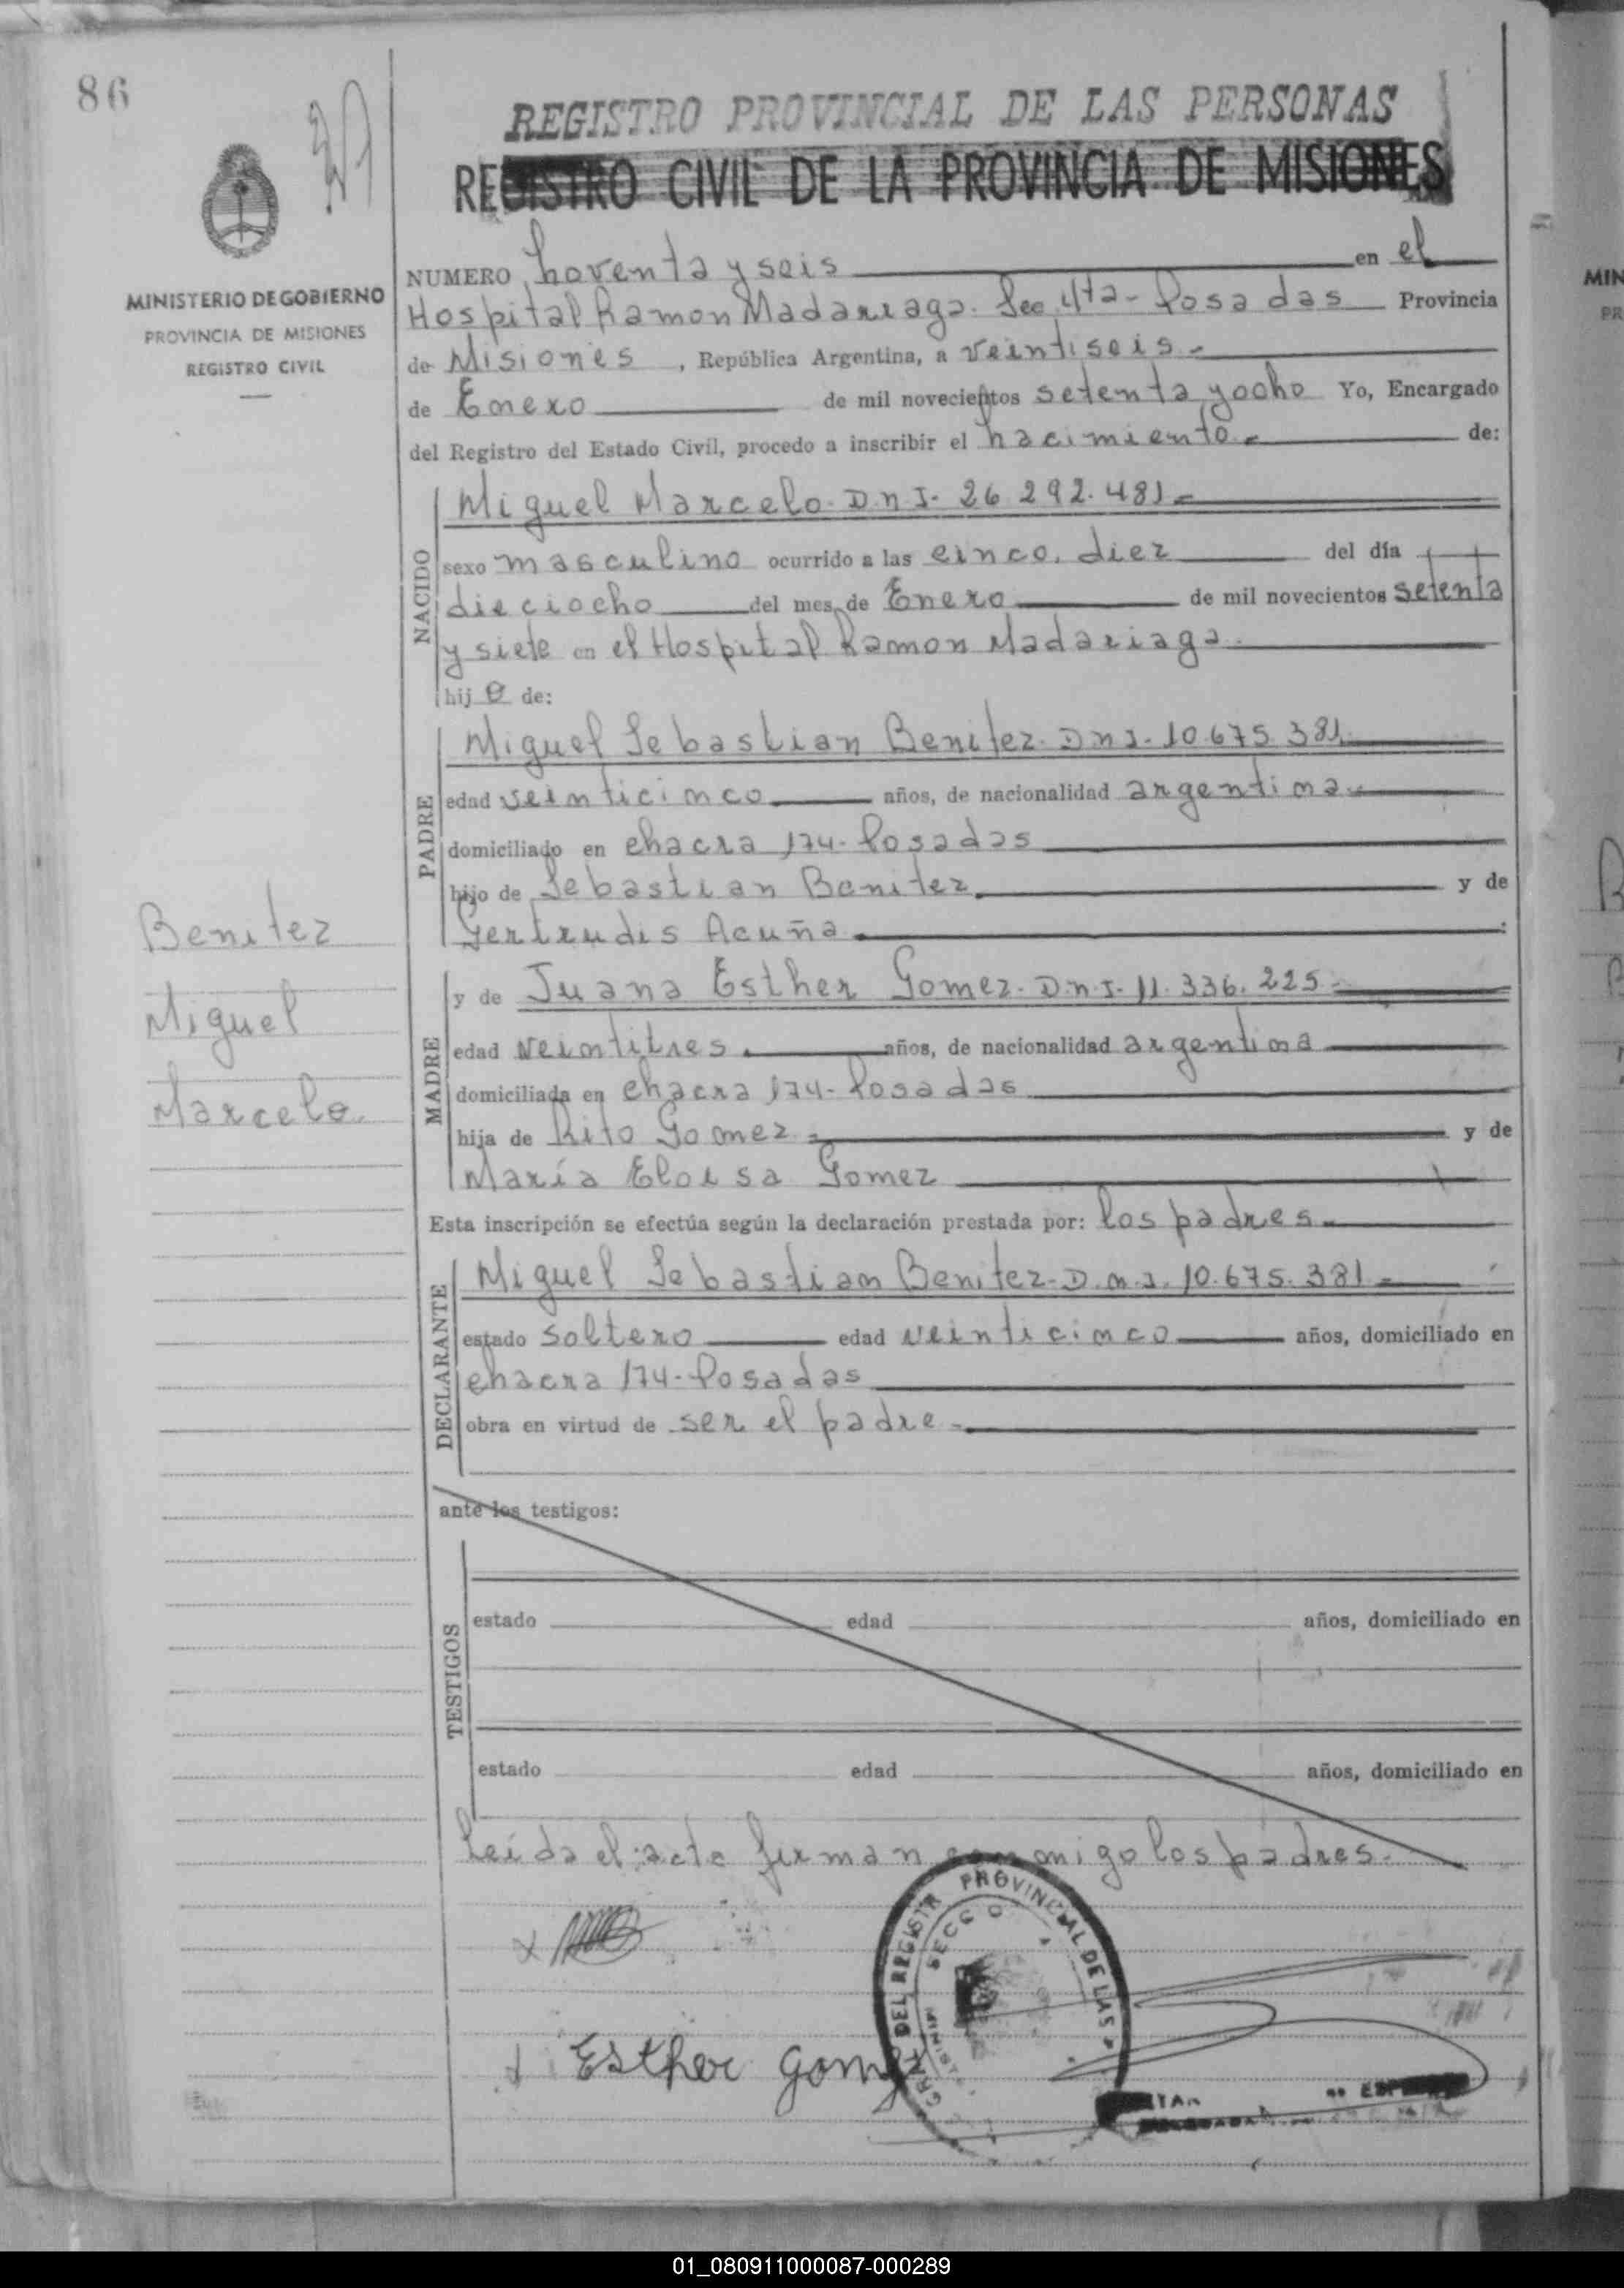 86
REGISTRO PROVINCIAL DE LAS PERSONAS
REGISTRO CIVIL DE LA PROVINCIA DE MISIONES
MINISTERIO DE GOBIERNO
PROVINCIA DE MISIONES
REGISTRO CIVIL
NUMERO Noventa y seis en el
Hospital Ramon Madariaga. Sec. 4ta - Posadas Provincia
de Misiones, República Argentina, a veintiseis.-
de Enero de mil novecientos setenta y ocho Yo, Encargado
del Registro del Estado Civil, procedo a inscribir el nacimiento.- de:
NACIDO
Miguel Marcelo. D.n.I. 26.292.481.-
sexo masculino ocurrido a las cinco, diez del día
dieciocho del mes de Enero de mil novecientos setenta
y siete en el Hospital Ramon Madariaga.
hijo de:
PADRE
Miguel Sebastian Benitez. DnI. 10.675.381
edad veinticinco años, de nacionalidad argentina.-
domiciliado en chacra 174- Posadas
hijo de Sebastian Benitez y de
Gertrudis Acuña :
Benitez
Miguel
Marcelo.
MADRE
y de Juana Esther Gomez. D.n.I. 11.336.225.-
edad veintitres. años, de nacionalidad argentina
domiciliada en chacra 174- Posadas
hija de Rito Gomez.- y de
María Eloisa Gomez
Esta inscripción se efectúa según la declaración prestada por: los padres.-
DECLARANTE
Miguel Sebastian Benitez- D.n.I. 10.675.381.-
estado soltero edad veinticinco años, domiciliado en
chacra 174- Posadas
obra en virtud de ser el padre.-
ante los testigos:
TESTIGOS
estado edad años, domiciliado en
estado edad años, domiciliado en
Leída el acta firman conmigo los padres.-
x
x Esther Gomez
GRAL DEL REGISTR PROVINCIAL DE LAS
SECC
01_080911000087-000289